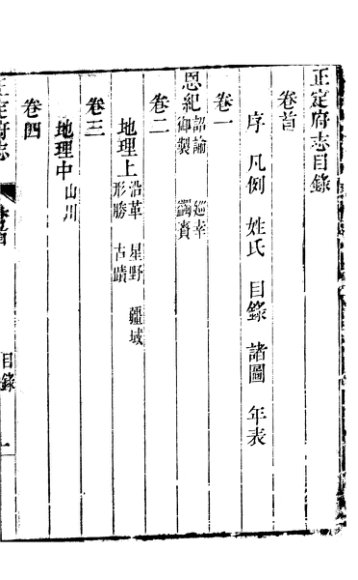 正定府志目錄
卷首
序 凡例 姓氏 目錄 諸圖 年表
卷一
恩紀 詔諭 巡幸
御製 蠲賚
卷二
地理上 沿革 星野 疆域
形勝 古蹟
卷三
地理中 山川
卷四
正定府志
目錄
一